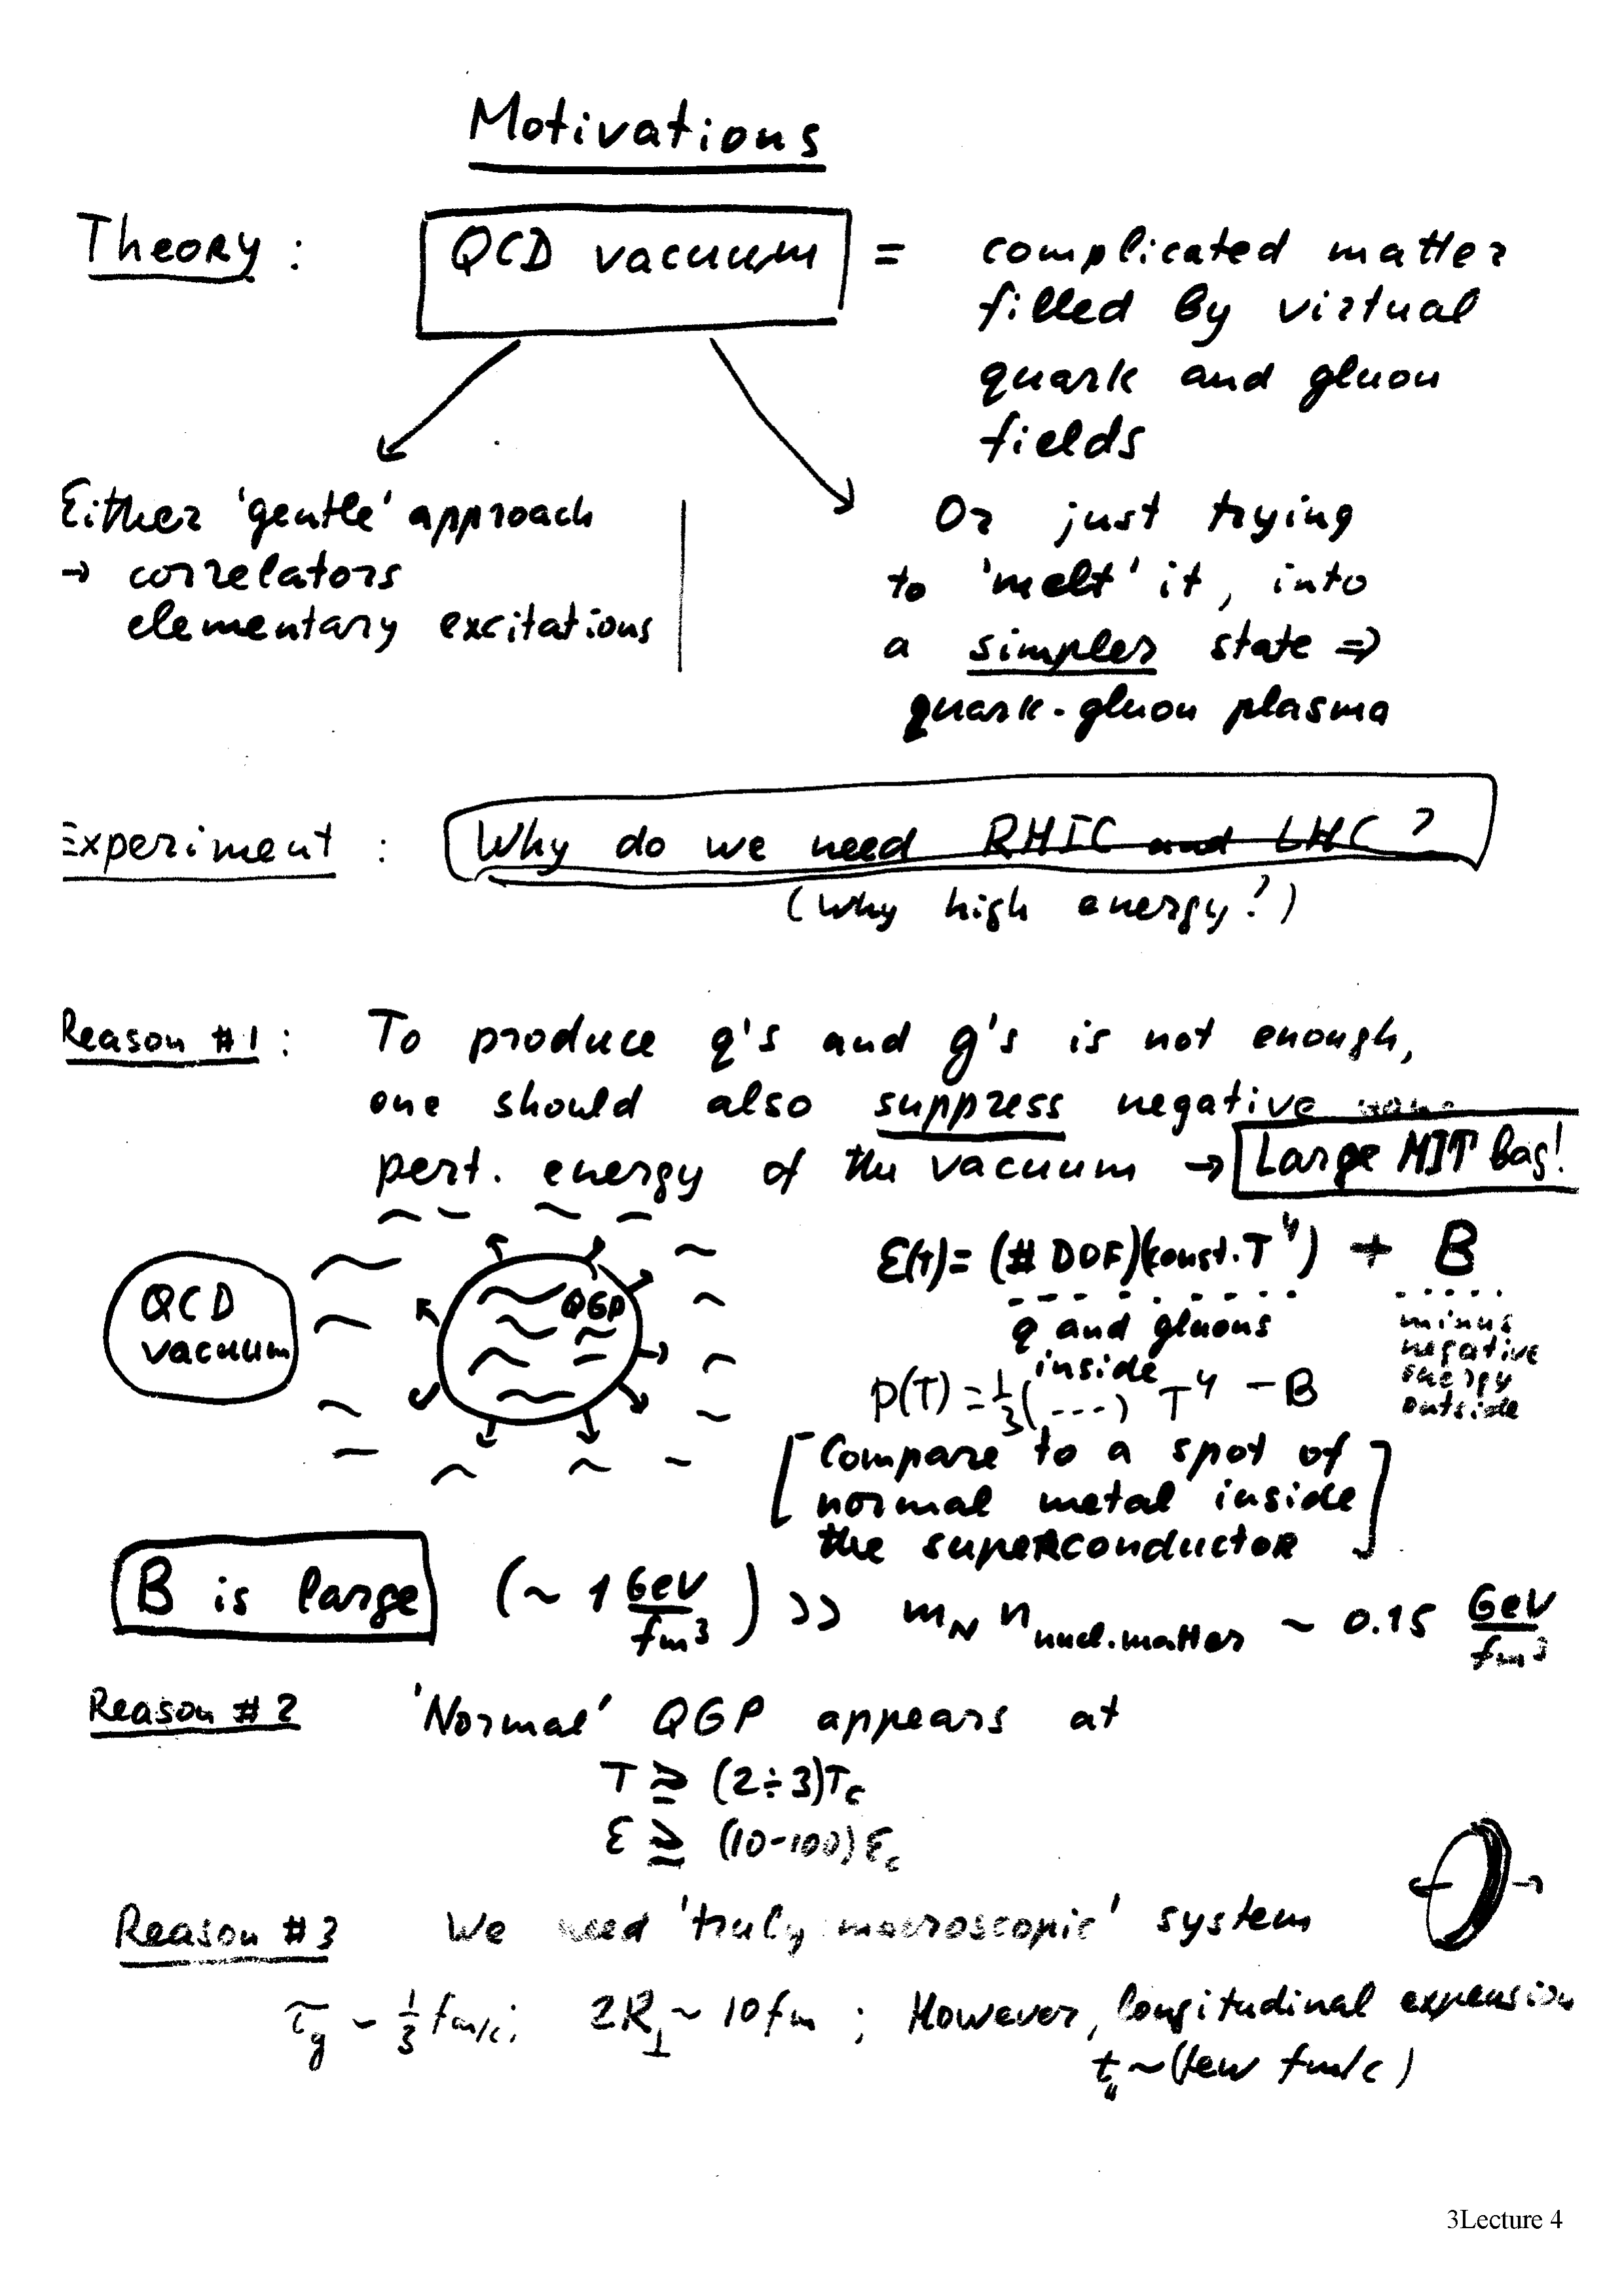 Motivations
Theory : QCD vacuum = complicated matter
filled by virtual
quark and gluon
fields
Either 'gentle' approach
→ correlators
elementary excitations
Or just trying
to 'melt' it, into
a simpler state ⇒
quark-gluon plasma
Experiment : Why do we need RHIC and LHC ?
(Why high energy?)
Reason #1 : To produce q's and g's is not enough,
one should also suppress negative
pert. energy of the vacuum → Large MIT bag!
QCD
vacuum
QGP
ε(T) = (# DOF)(const. T⁴) + B
q and gluons
inside
minus
negative
energy
outside
p(T) = 1/3 (...) T⁴ - B
[Compare to a spot of
normal metal inside
the superconductor]
B is large (~ 1 GeV/fm³) >> m_N n_nucl.matter ~ 0.15 GeV/fm³
Reason #2 'Normal' QGP appears at
T ≥ (2÷3)T_c
ε ≥ (10-100)ε_c
Reason #3 We need 'truly macroscopic' system
τ_g ~ 1/3 fm/c; 2R_⊥ ~ 10 fm ; However, longitudinal expansion
t_∥ ~ (few fm/c)
3Lecture 4